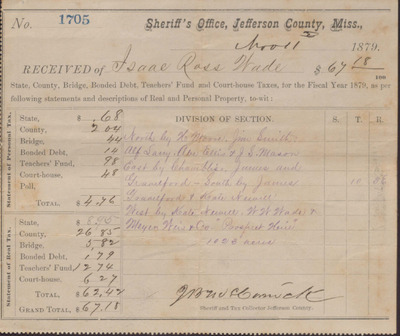 No. 1705 Sheriff's Office, Jefferson County, Miss.,
Nov 11 1879.
RECEIVED of Isaac Ross Wade $67 18/100
State, County, Bridge, Bonded Debt, Teachers' Fund and Court-house Taxes, for the Fiscal Year 1879, as per
following statements and descriptions of Real and Personal Property, to-wit:
Statement of Personal Tax.
State, $ .68
County, 2 04
Bridge, 44
Bonded Debt, 14
Teachers' Fund, 98
Court-house, 48
Poll,
TOTAL, $ 4.76
Statement of Real Tax.
State, $ 8.95
County, 26 85
Bridge, 5,82
Bonded Debt, 1 79
Teachers' Fund, 12 74
Court-house, 6 27
TOTAL, $ 62,42
GRAND TOTAL, $ 67,18
DIVISION OF SECTION. S. T. R.
North by H Moore, Jim Smith
& J. S. Mason
East by James and
South by James 10
& Kate Newell
West by Kate Newell W. W. Wade &
Meyer Weis & Co "Prospect Hill"
1023 acres
J B McCormick
Sheriff and Tax Collector Jefferson County.